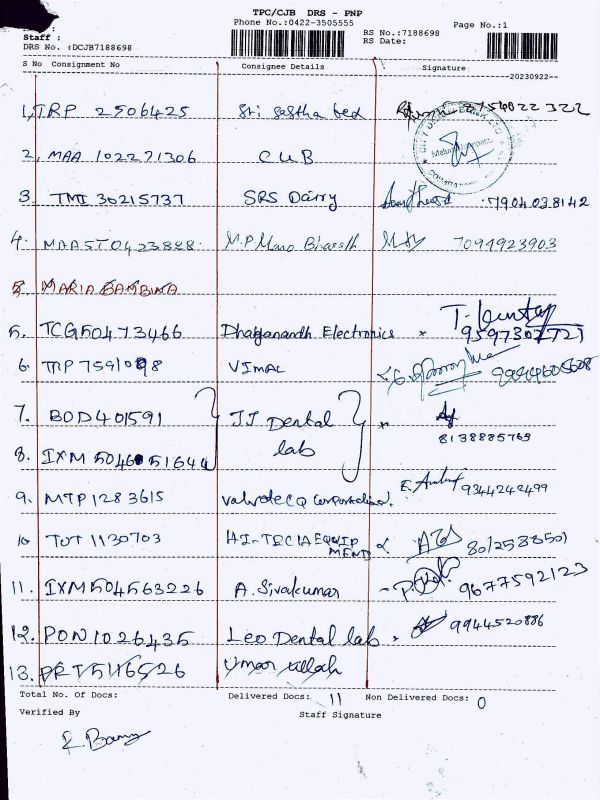 TPC/CJB DRS - PNP
Phone No.:0422-3505555 Page No.:1
Staff : RS No.:7188698
DRS No. :DCJB7188698 RS Date:
S No Consignment No Consignee Details Signature
20230922
1, TRP 2506425 Sri sastha bed
2, MAA 102271306 CUB
3. TMI 30215737 SRS Dairy 7904038142
4. MAAST0423828 M.P. Mano Bharath 7094923903
5. MARIA BAMBINA
5. TCG50473466 Dhayanandh Electronics 9597307721
6. TRP 7591098 VIMAL
7. BOD401591 JJ Dental 8138885765
8. IXM 504651644 lab
9. MTP1283615 Corporation. 9344242499
10 TUT 1130703 HI-TECH EQUIPMENTS
11. IXM504563226 A. Sivakumar 9677592123
12. PON1026435 Leo Dental lab 9944520886
13. PRT5116526 Umar ullah
Total No. Of Docs: Delivered Docs: 11 Non Delivered Docs: 0
Verified By Staff Signature